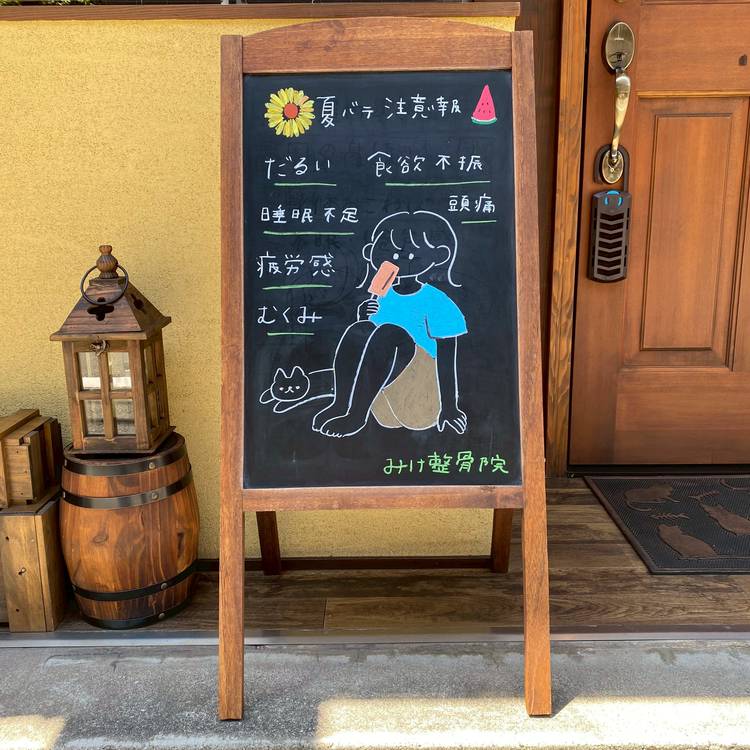 夏バテ 注意報
だるい 食欲不振
睡眠不足 頭痛
疲労感
むくみ
みけ整骨院